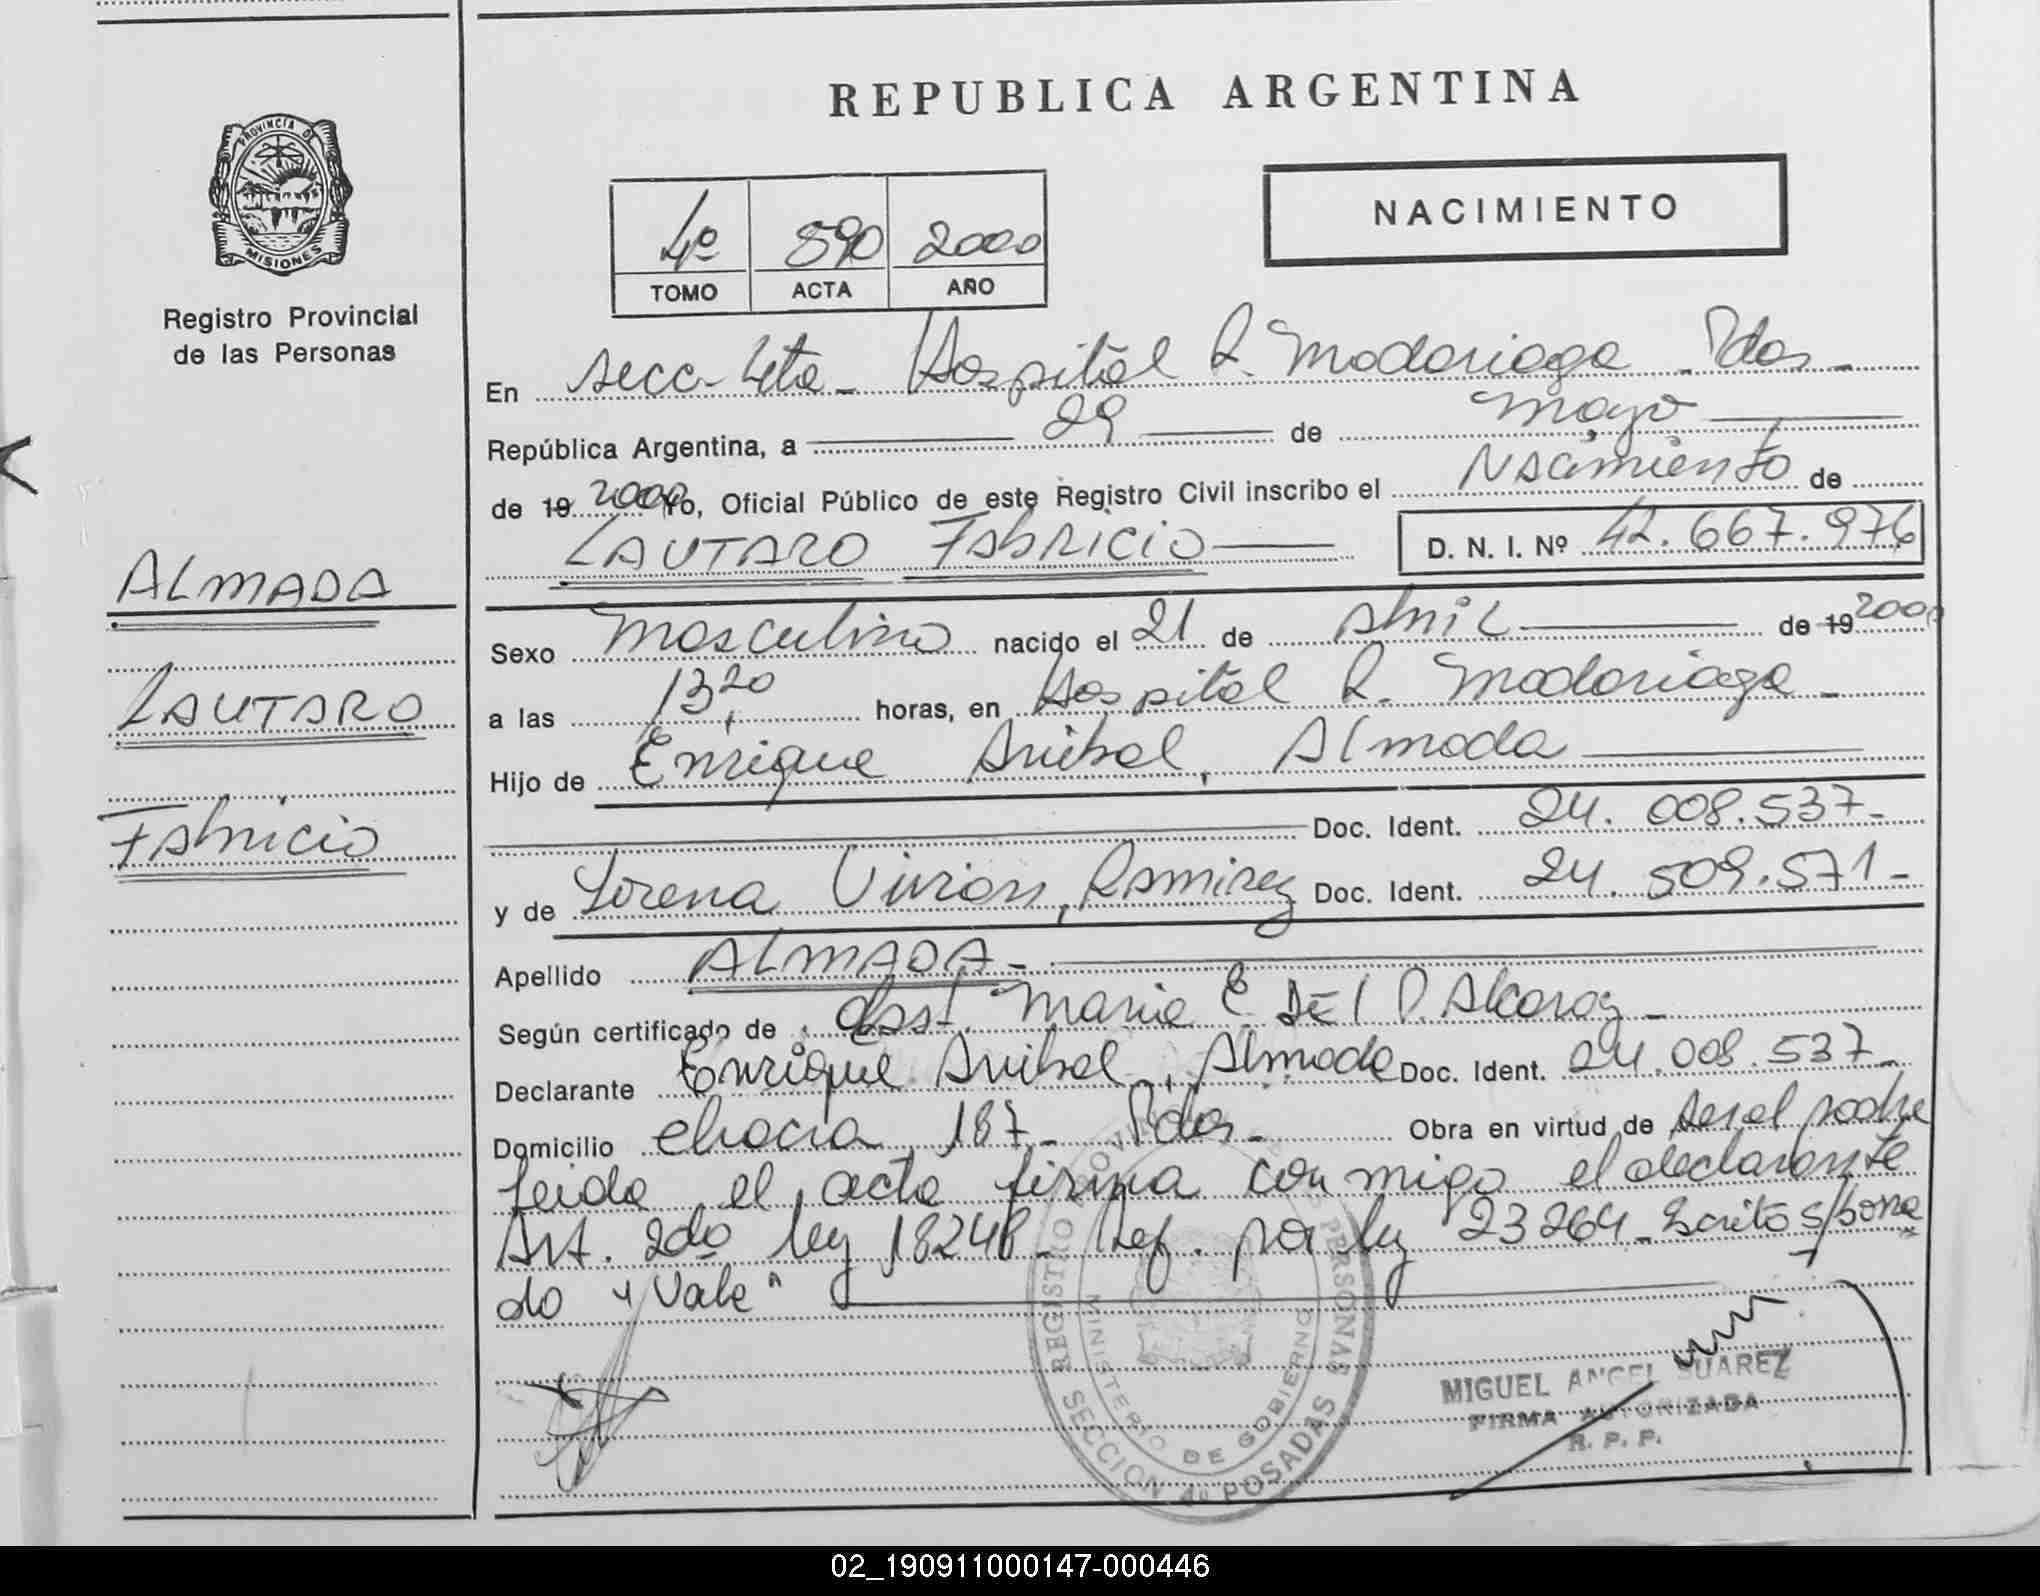 REPUBLICA ARGENTINA
PROVINCIA DE
MISIONES
Registro Provincial
de las Personas
4º 590 2000
TOMO ACTA AÑO
NACIMIENTO
En secc. 4ta - Hospital R. Madariaga - Pdas -
República Argentina, a 29 de mayo
de 19 2000 Yo, Oficial Público de este Registro Civil inscribo el Nacimiento de
LAUTARO FABRICIO D. N. I. Nº 42.667.976
ALMADA
LAUTARO
Fabricio
Sexo masculino nacido el 21 de Abril de 19 2000
a las 13,20 horas, en Hospital R. Madariaga -
Hijo de Enrique Anibal, Almada
Doc. Ident. 24.008.537-
y de Lorena Vivian, Ramirez Doc. Ident. 24.509.571-
Apellido ALMADA -
Según certificado de Obst. Maria E. Del P. Alcaraz -
Declarante Enrique Anibal, Almada Doc. Ident. 24.008.537-
Domicilio 187 - Pdas - Obra en virtud de ser el padre
Leida el acta firma conmigo el declarante
Art. 2do ley 18248 - Ref. por ley 23264 - Escrito s/borra
do "Vale"
REGISTRO PROVINCIAL DE LAS PERSONAS
MINISTERIO DE GOBIERNO
SECCION 4ª POSADAS
MIGUEL ANGEL SUAREZ
FIRMA AUTORIZADA
R. P. P.
02_190911000147-000446